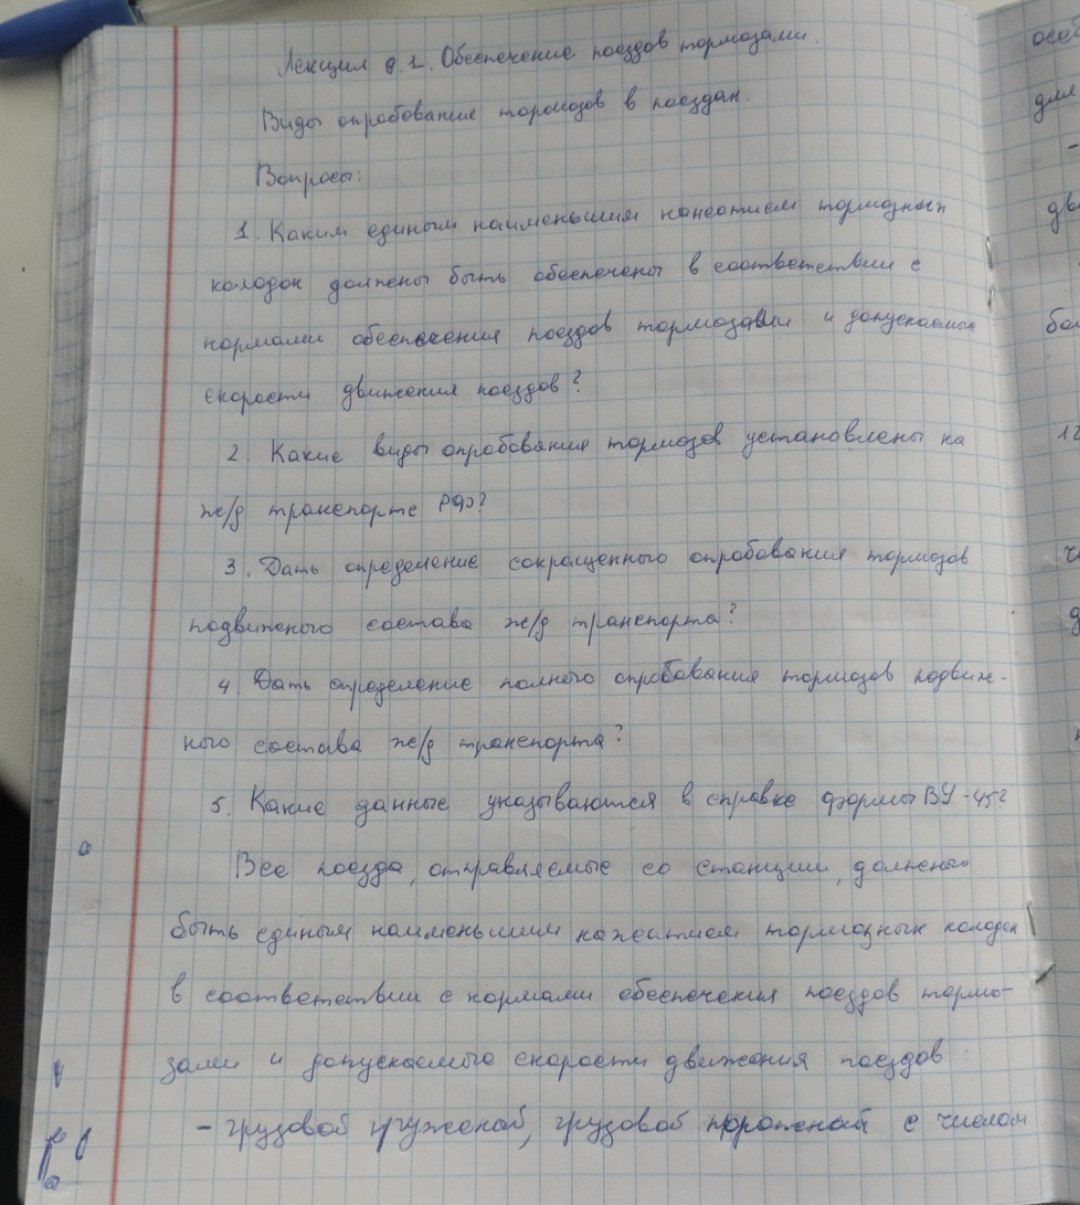 Лекция 8.1. Обеспечение поездов тормозами.
Виды опробования тормозов в поездах.
Вопросы:
1. Каким единым наименьшим нажатием тормозных
колодок должены быть обеспечены в соответствии с
нормами обеспечения поездов тормозами и допускаемые
скорости движения поездов?
2. Какие виды опробования тормозов установлены на
ж/д транспорте РФ?
3. Дать определение сокращенного опробования тормозов
подвижного состава ж/д транспорта?
4. Дать определение полного опробования тормозов подвиж-
ного состава ж/д транспорта?
5. Какие данные указываются в справке формы ВУ-45?
Все поезда, отправляемые со станции, должны
быть единым наименьшим нажатием тормозных колодок
в соответствии с нормами обеспечения поездов тормо-
зами и допускаемого скорости движения поездов:
- грузовой груженой, грузовой порожной с числом
осей
для
-
12